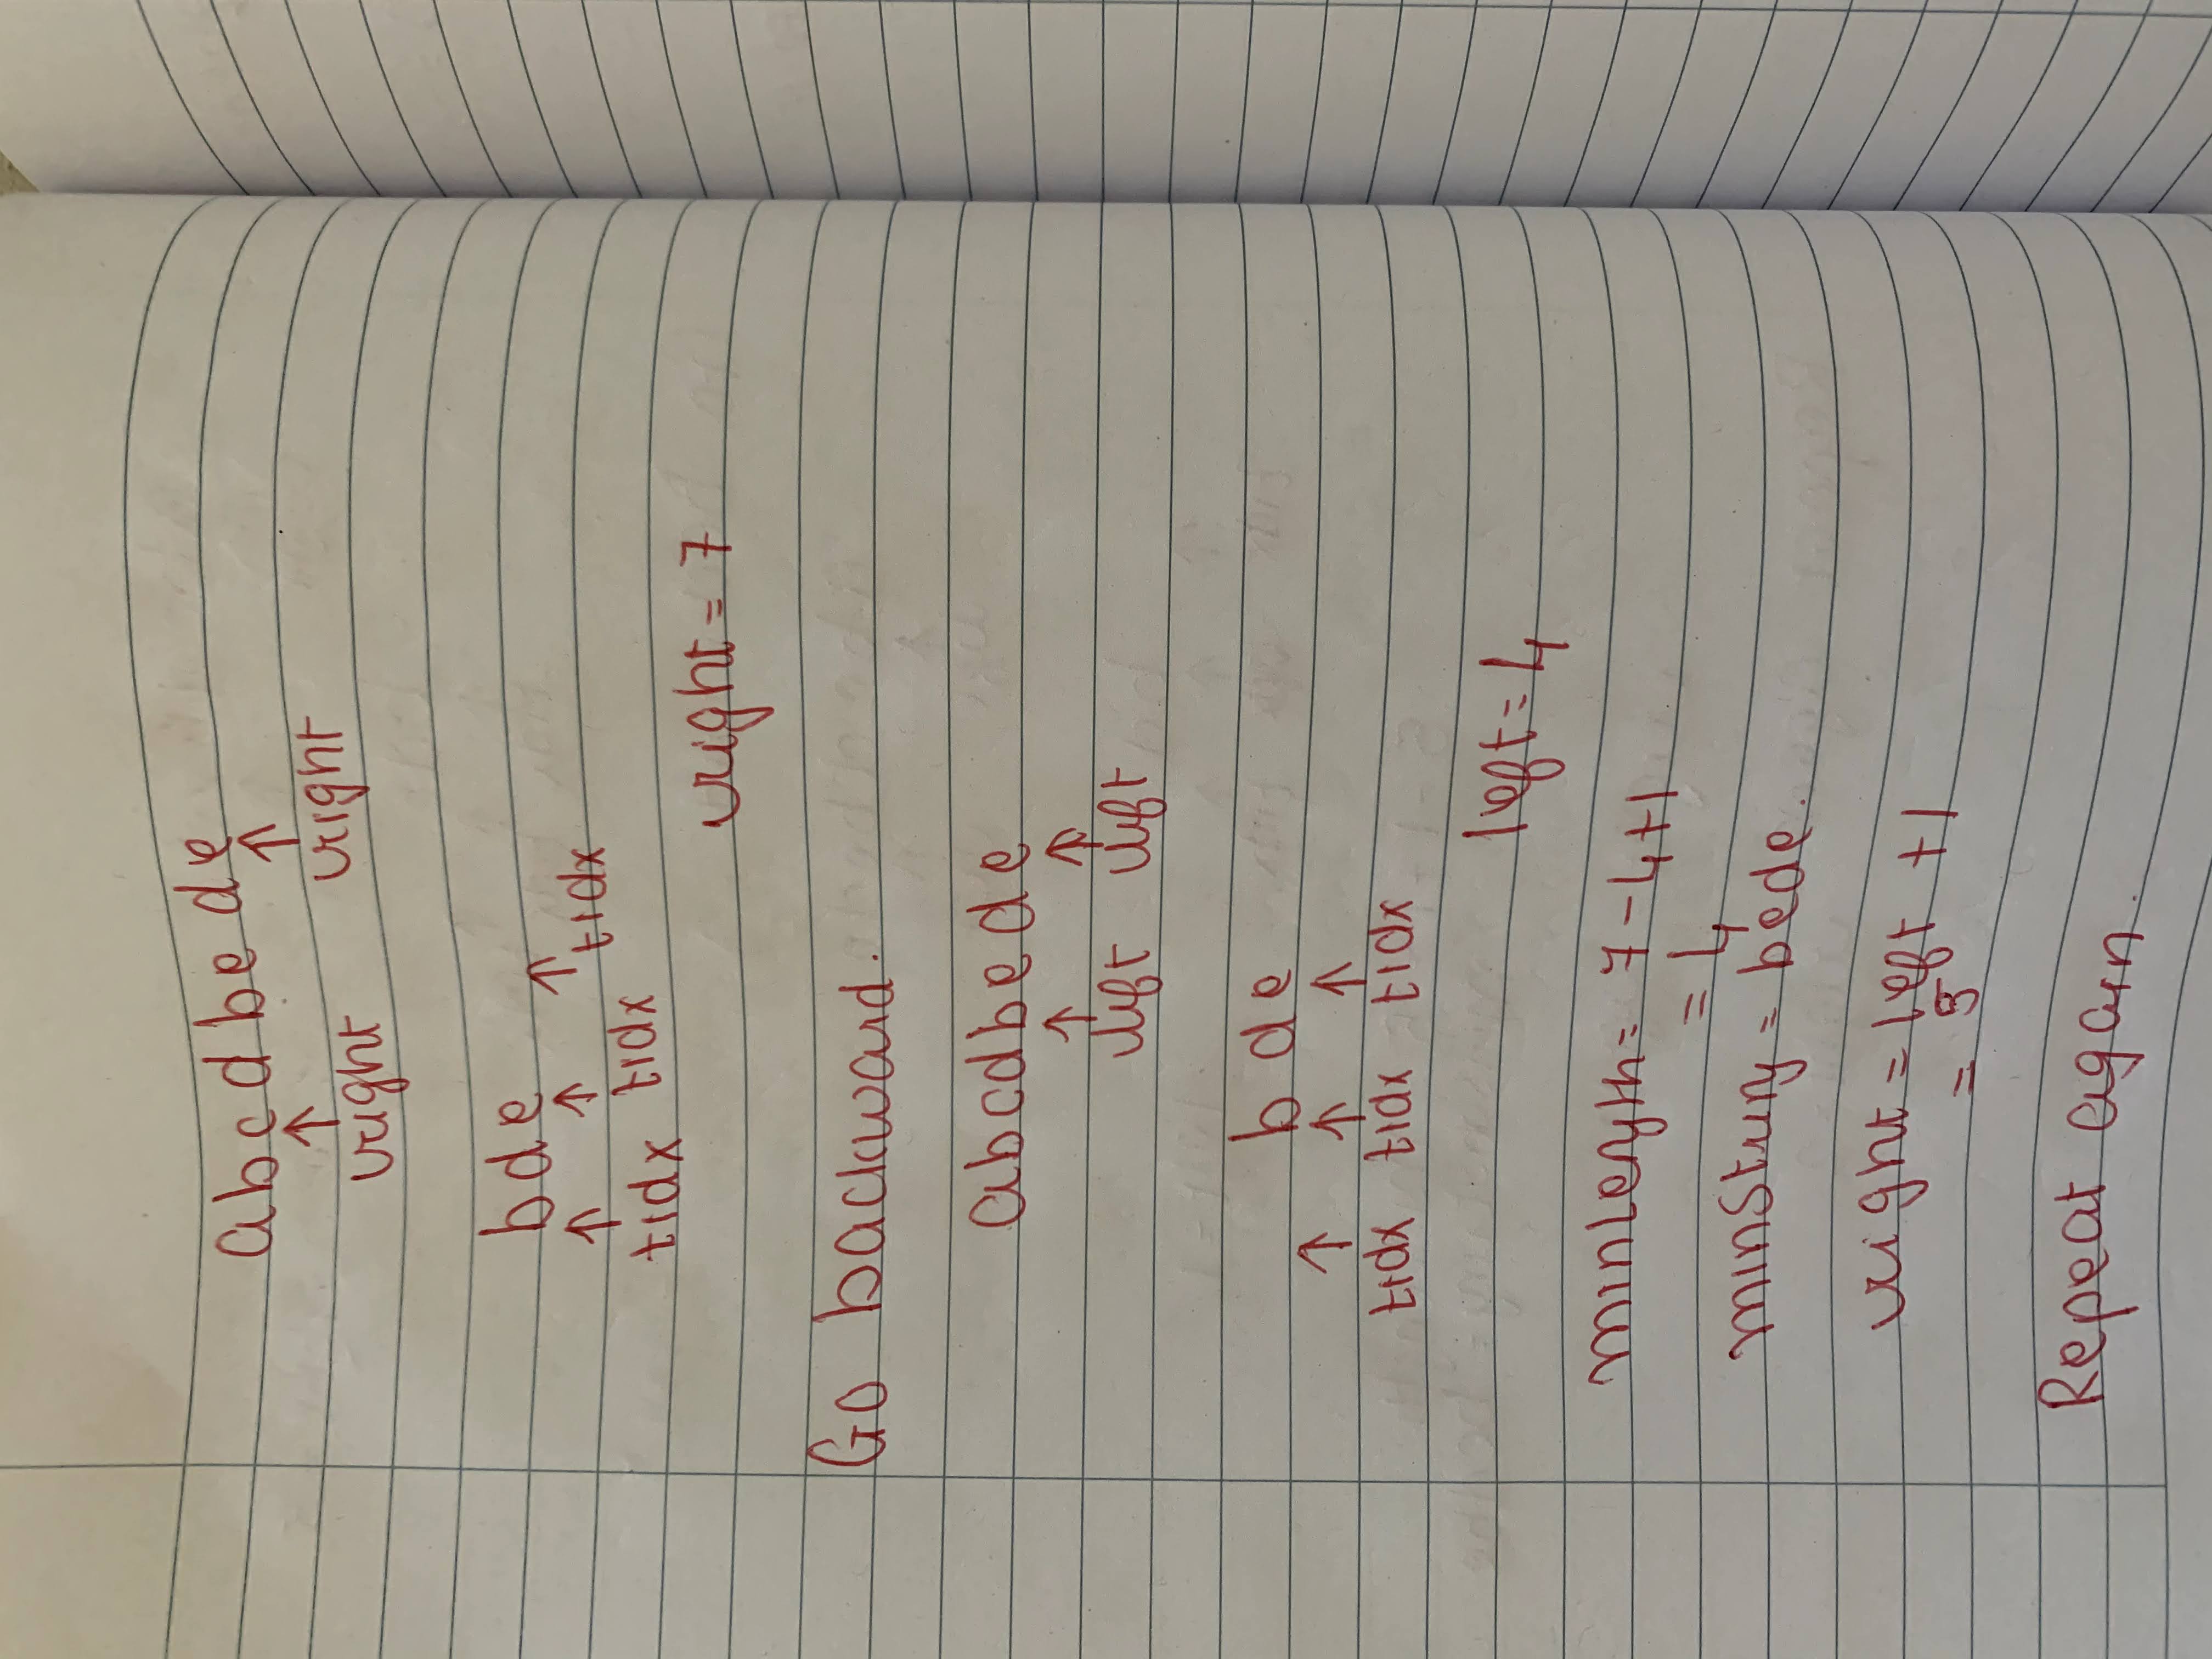 abcdbede
↑ ↑
right right
bde
↑ ↑ ↑
tidx tidx tidx
right = 7
Go backward.
abcdbede
↑ ↑
left left
b d e
↑ ↑ ↑
tidx tidx tidx
left = 4
minlength = 7 - 4 + 1
= 4
minString = bede.
right = left + 1
= 5
Repeat again.